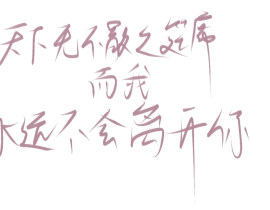 天下无不散之筵席
而我
永远不会离开你